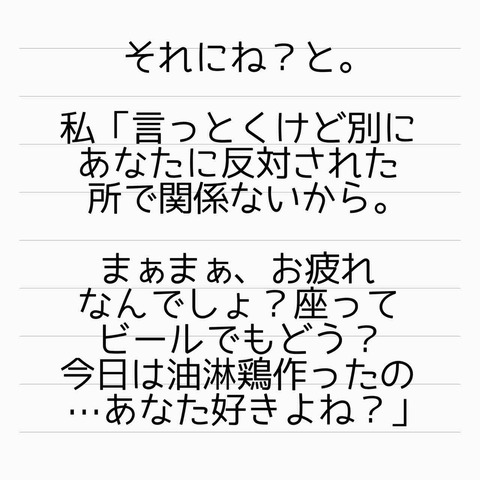 それにね？と。
私「言っとくけど別に
あなたに反対された
所で関係ないから。
まぁまぁ、お疲れ
なんでしょ？座って
ビールでもどう？
今日は油淋鶏作ったの
…あなた好きよね？」